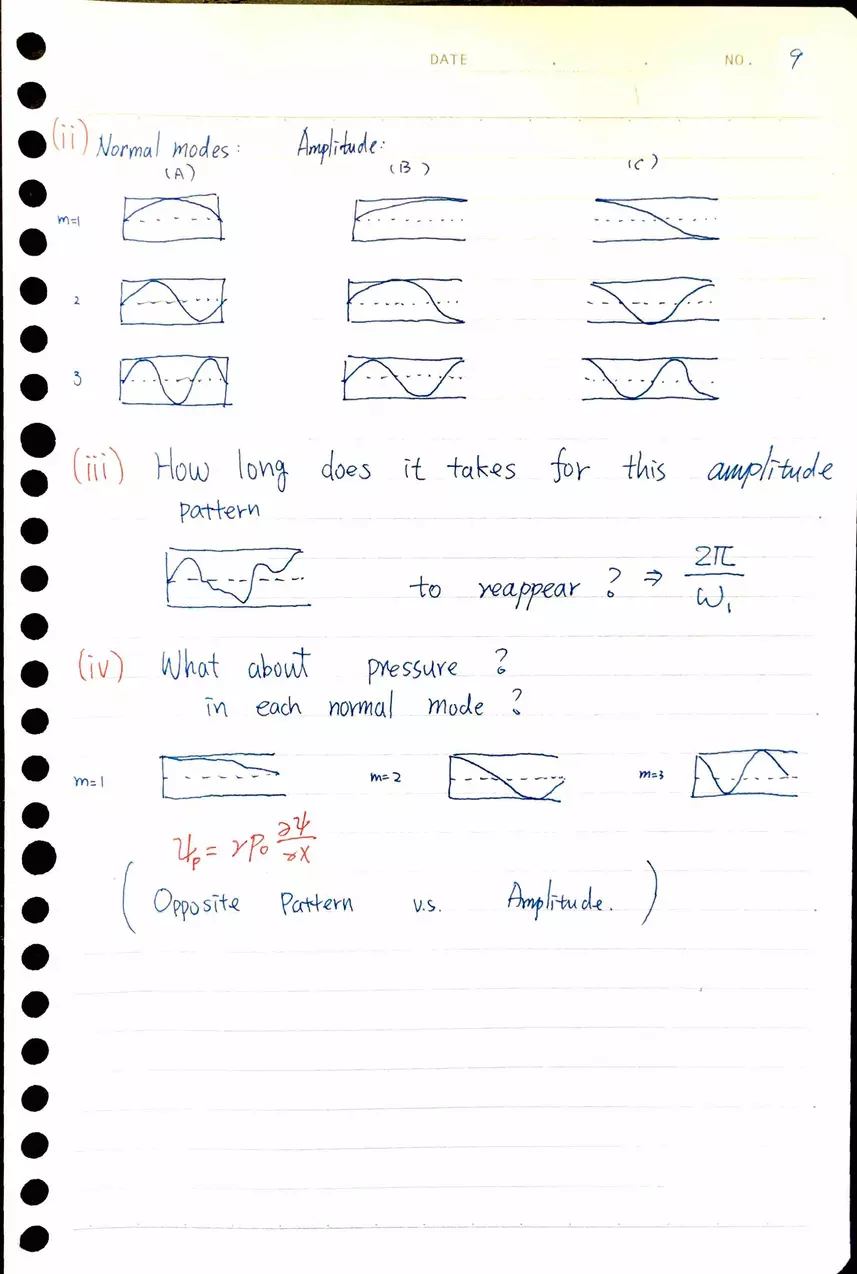 DATE . . NO. 9
(ii) Normal modes: Amplitude:
(A) (B) (C)
m=1
2
3
(iii) How long does it takes for this amplitude
pattern
to reappear ? ⇒ 2π/ω₁
(iv) What about pressure ?
in each normal mode ?
m=1 m=2 m=3
ψₚ = γP₀ ∂ψ/∂x
( Opposite Pattern v.s. Amplitude. )